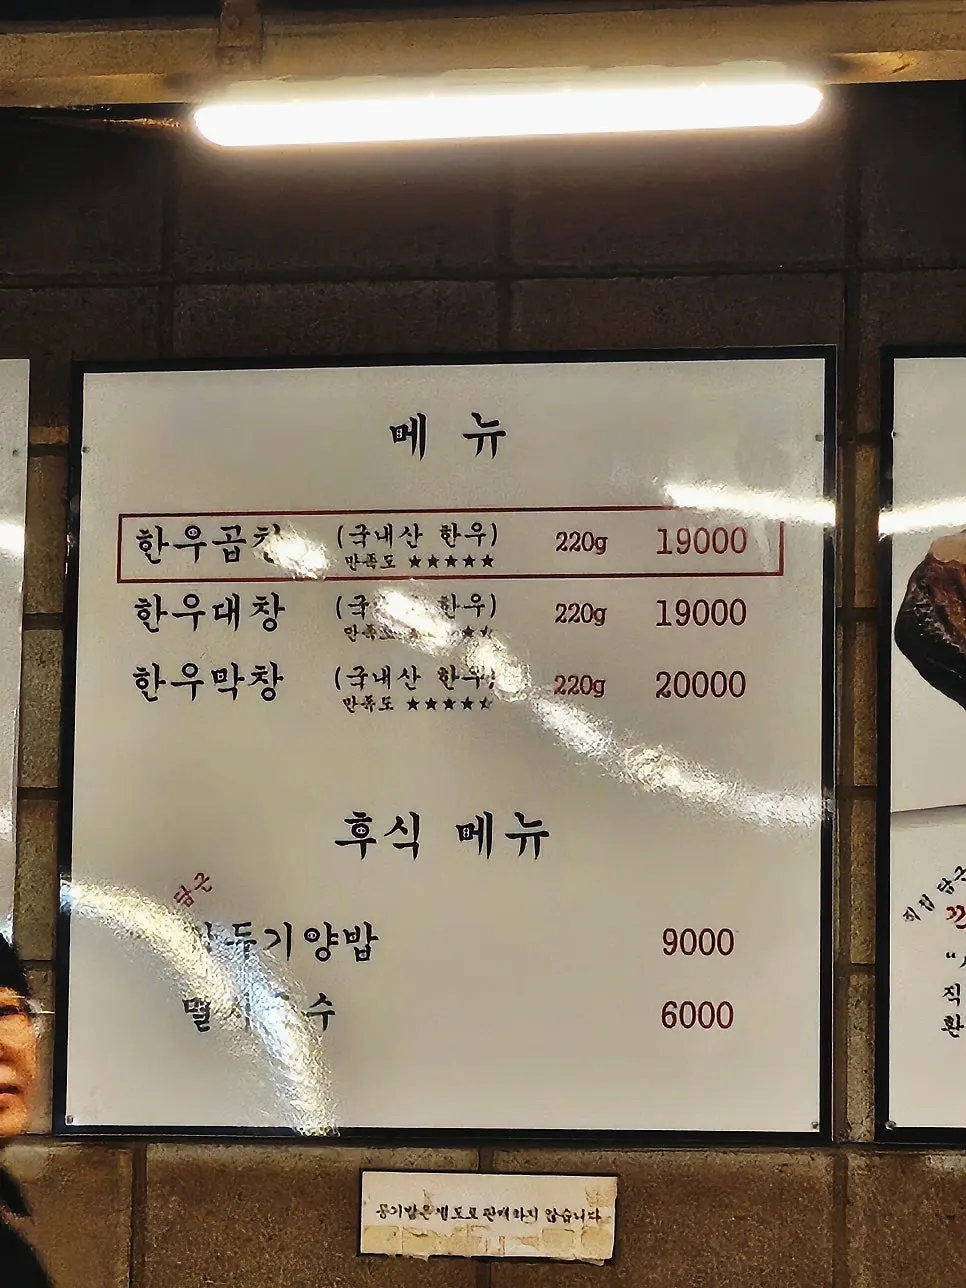 메뉴
한우곱창 (국내산 한우) 220g 19000
만족도 ★★★★★
한우대창 (국내산 한우) 220g 19000
만족도
한우막창 (국내산 한우) 220g 20000
만족도 ★★★★⯪
후식 메뉴
담근
기양밥 9000
멸치국수 6000
공기밥은 별도로 판매하지 않습니다
직접 담근
직
환